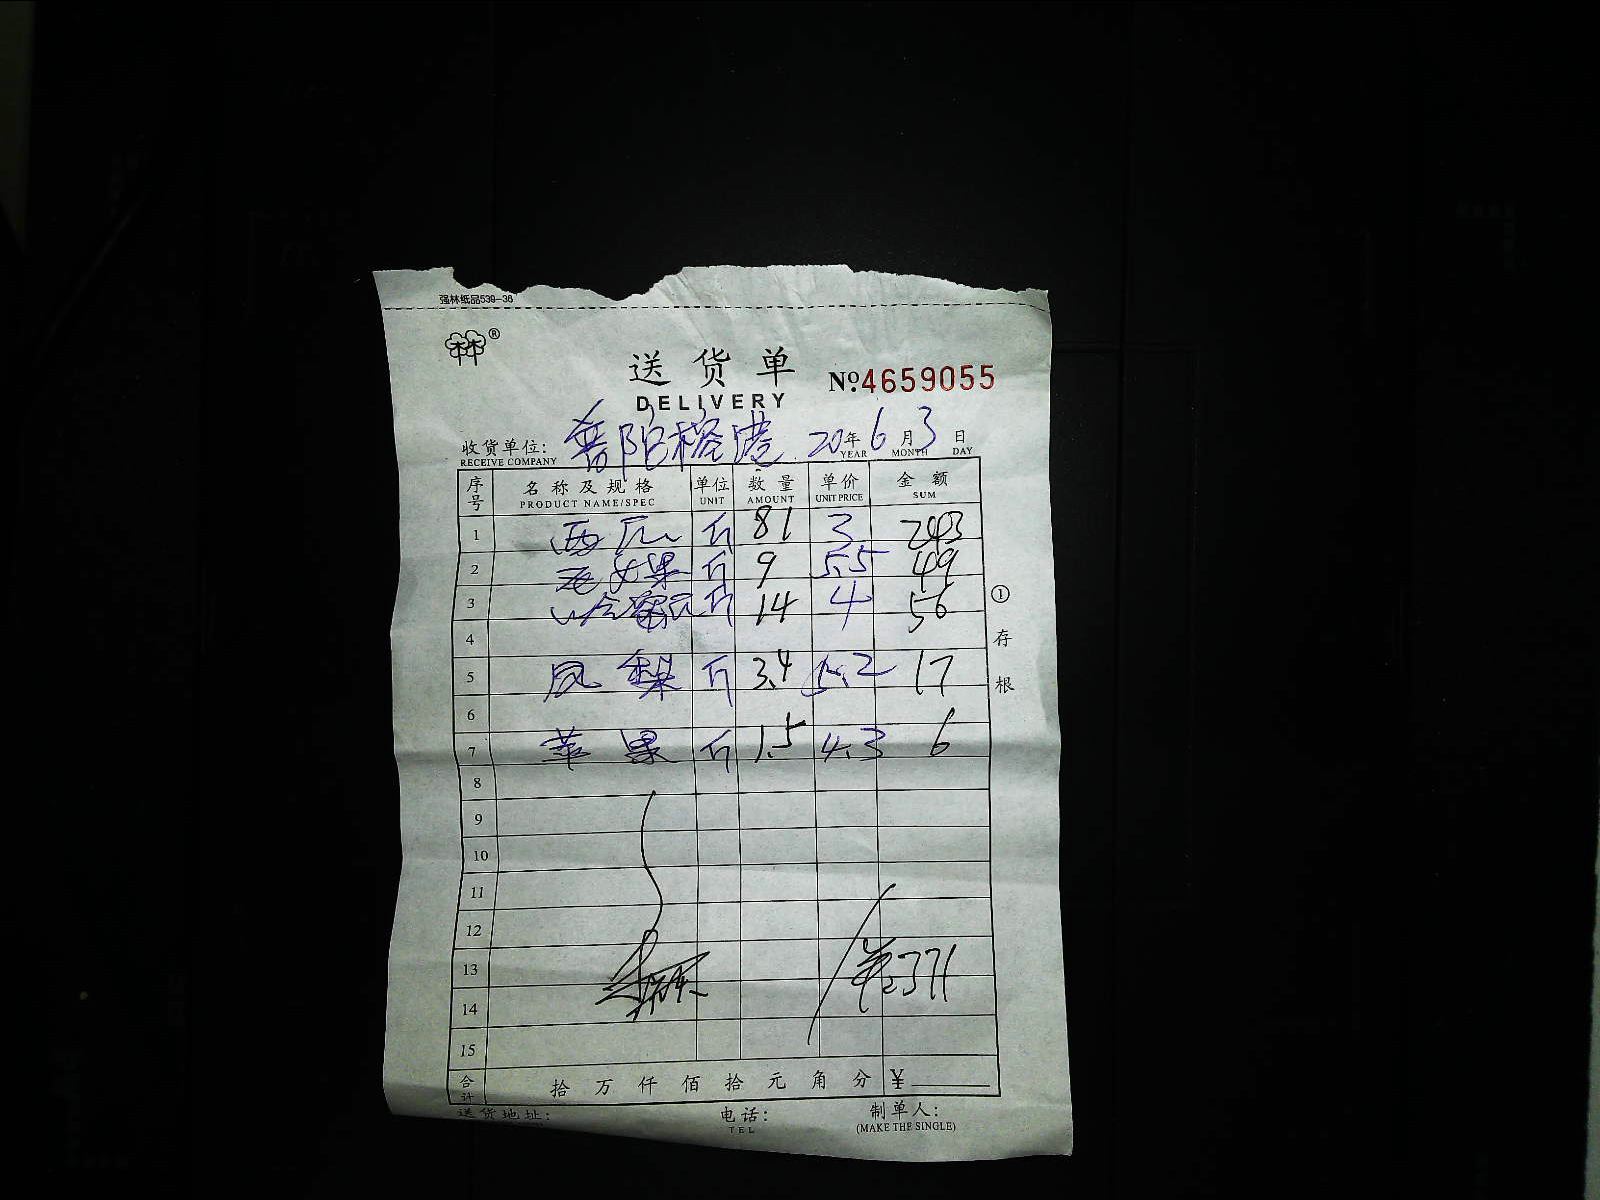 强林纸品539-36
林®
送货单 No.4659055
DELIVERY
收货单位: 20年6月3日
RECEIVE COMPANY YEAR MONTH DAY
序号 名称及规格 单位 数量 单价 金额
PRODUCT NAME/SPEC UNIT AMOUNT UNIT PRICE SUM
1 西瓜 斤 81 3 243
2 圣女果 斤 9 5.5 49
3 哈密瓜 斤 14 4 56
4
5 凤梨 斤 3.4 5.2 17
6
7 苹果 斤 1.5 4.3 6
8
9
10
11
12
13 371
14
15
合计 拾万仟佰拾元角分 ¥
送货地址: 电话: 制单人:
TEL (MAKE THE SINGLE)
①存根